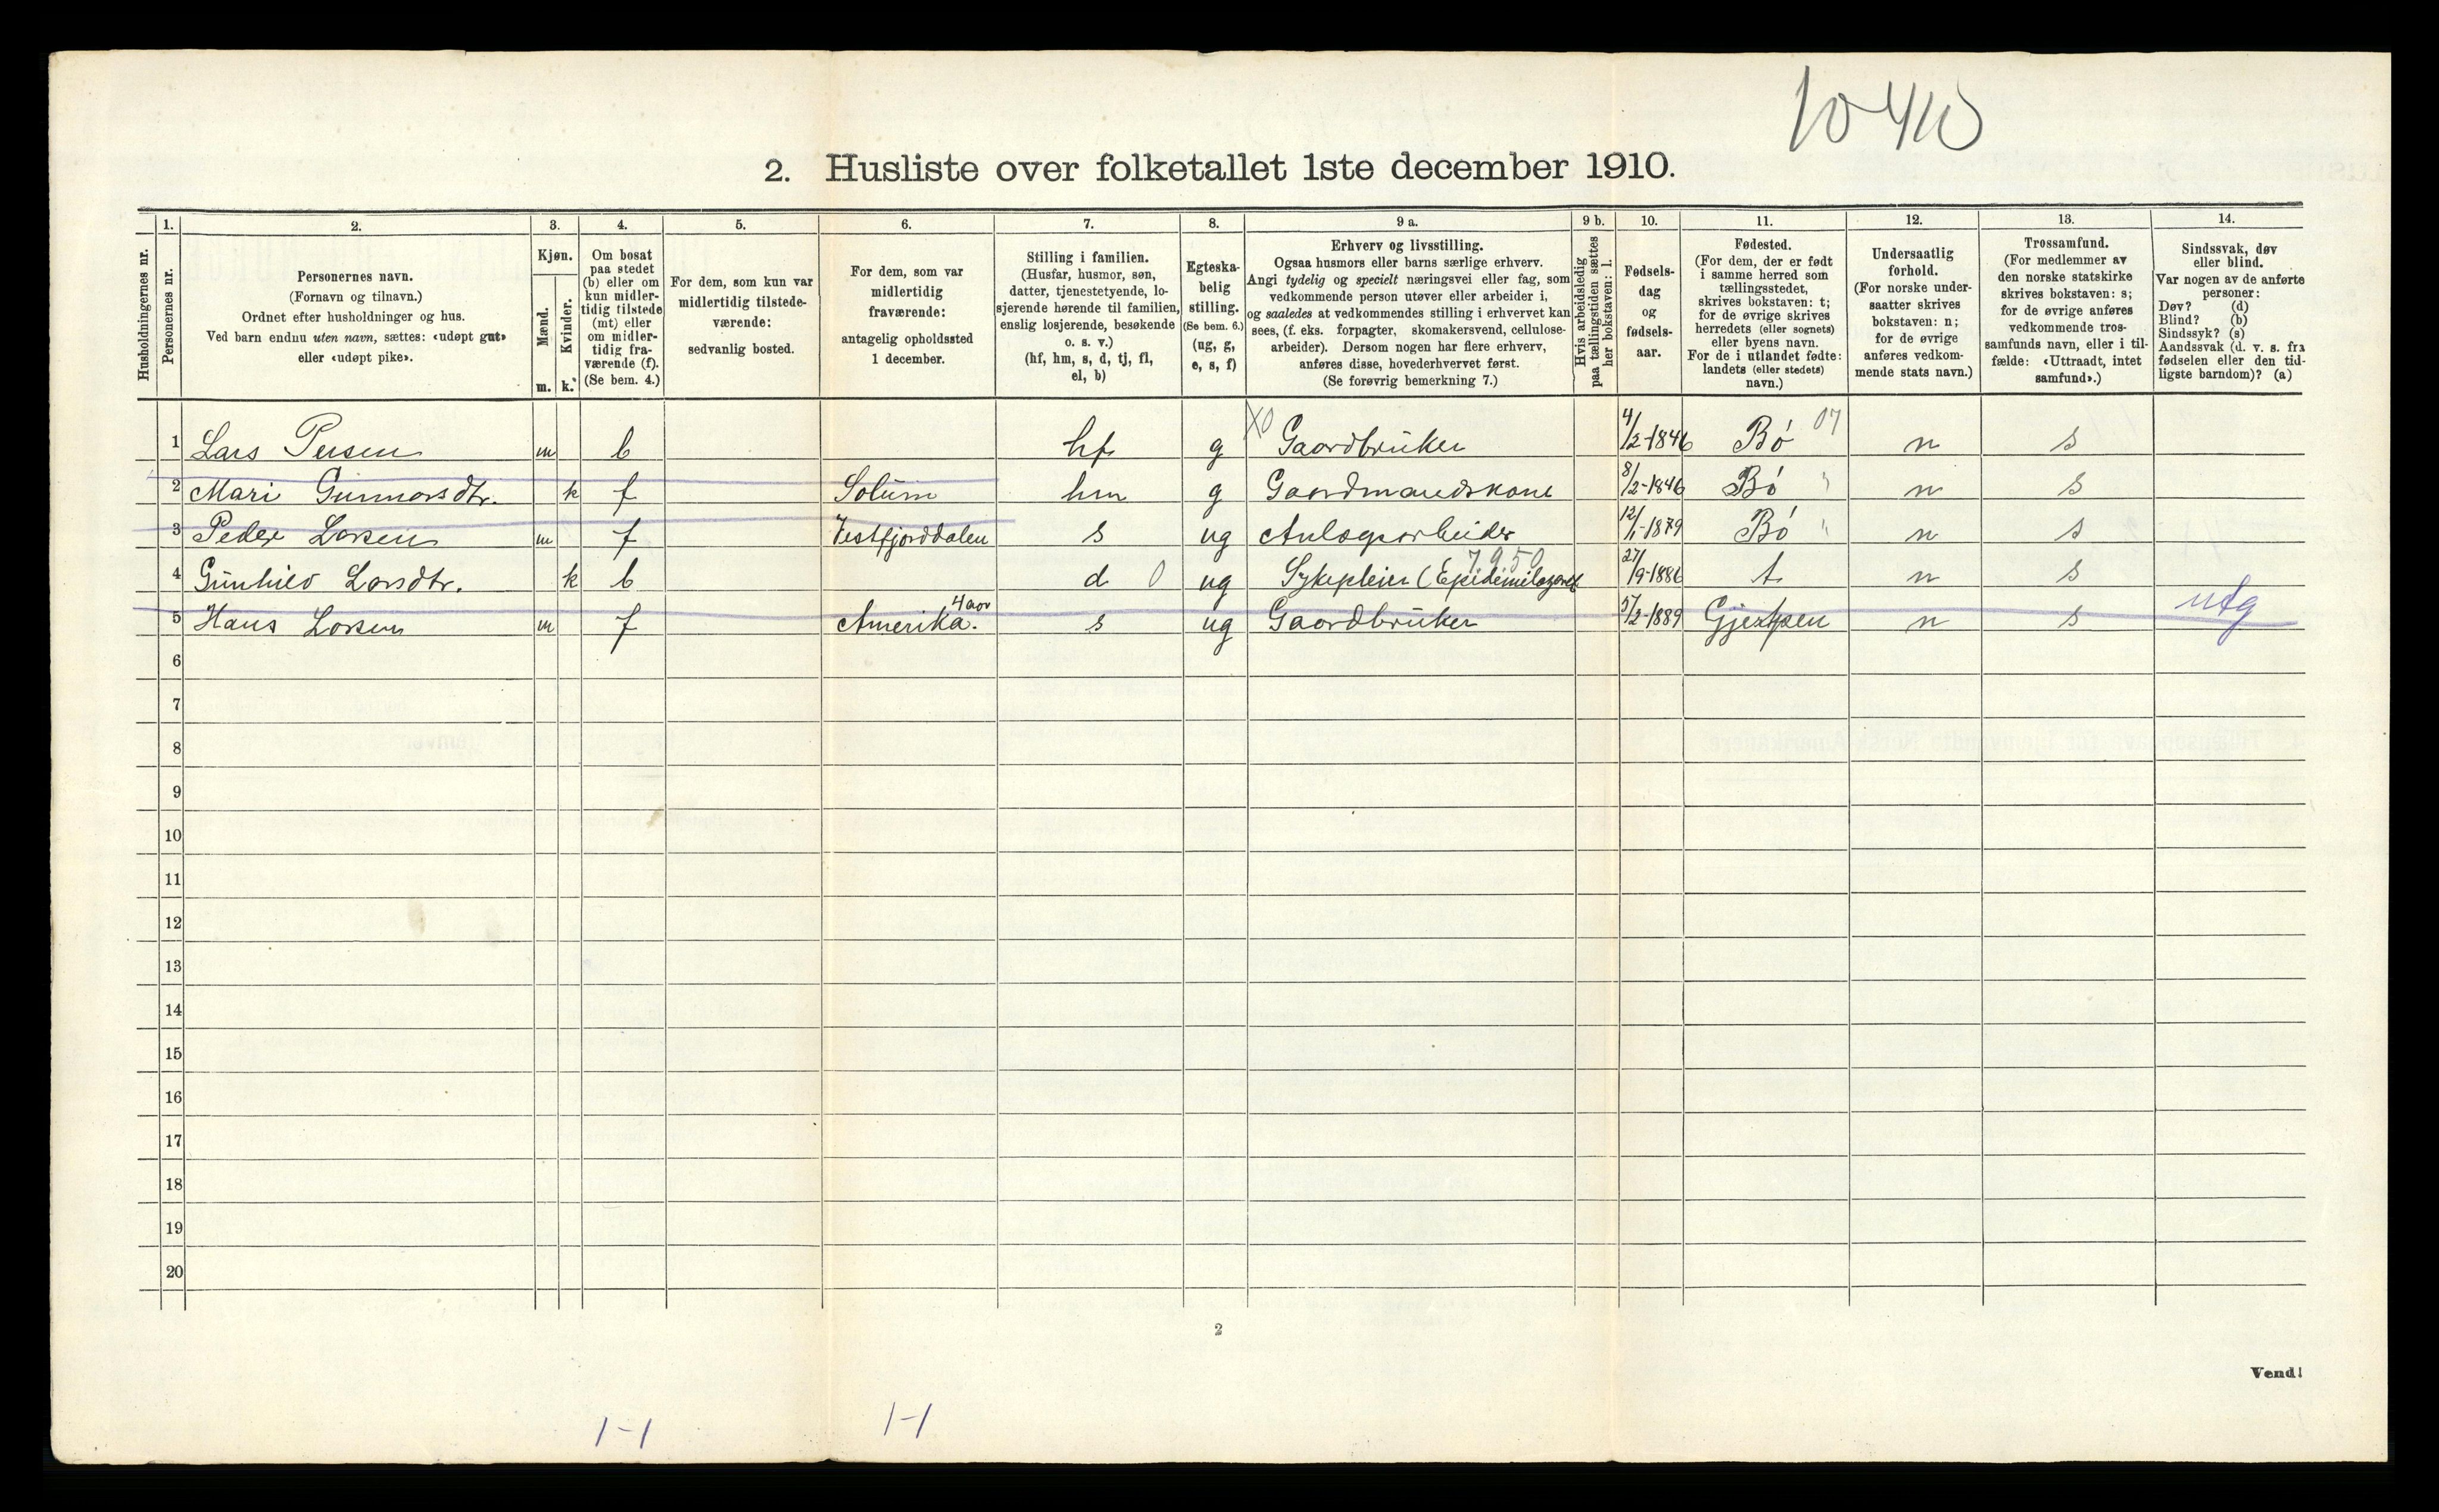 10410
2. Husliste over folketallet 1ste december 1910.
Husholdningernes nr.
1.
Personernes nr.
2.
Personernes navn.
(Fornavn og tilnavn.)
Ordnet efter husholdninger og hus.
Ved barn endnu uten navn, sættes: «udøpt gut»
eller «udøpt pike».
3.
Kjøn.
Mænd.
m.
Kvinder.
k.
4.
Om bosat
paa stedet
(b) eller om
kun midler-
tidig tilstede
(mt) eller
om midler-
tidig fra-
værende (f).
(Se bem. 4.)
5.
For dem, som kun var
midlertidig tilstede-
værende:
sedvanlig bosted.
6.
For dem, som var
midlertidig
fraværende:
antagelig opholdssted
1 december.
7.
Stilling i familien.
(Husfar, husmor, søn,
datter, tjenestetyende, lo-
sjerende hørende til familien,
enslig losjerende, besøkende
o. s. v.)
(hf, hm, s, d, tj, fl,
el, b)
8.
Egteska-
belig
stilling.
(Se bem. 6.)
(ug, g,
e, s, f)
9 a.
Erhverv og livsstilling.
Ogsaa husmors eller barns særlige erhverv.
Angi tydelig og specielt næringsvei eller fag, som
vedkommende person utøver eller arbeider i,
og saaledes at vedkommendes stilling i erhvervet kan
sees, (f. eks. forpagter, skomakersvend, cellulose-
arbeider). Dersom nogen har flere erhverv,
anføres disse, hovederhvervet først.
(Se forøvrig bemerkning 7.)
9 b.
Hvis arbeidsledig
paa tællingstiden sættes
her bokstaven: l.
10.
Fødsels-
dag
og
fødsels-
aar.
11.
Fødested.
(For dem, der er født
i samme herred som
tællingsstedet,
skrives bokstaven: t;
for de øvrige skrives
herredets (eller sognets)
eller byens navn.
For de i utlandet fødte:
landets (eller stedets)
navn.)
12.
Undersaatlig
forhold.
(For norske under-
saatter skrives
bokstaven: n;
for de øvrige
anføres vedkom-
mende stats navn.)
13.
Trossamfund.
(For medlemmer av
den norske statskirke
skrives bokstaven: s;
for de øvrige anføres
vedkommende tros-
samfunds navn, eller i til-
fælde: «Uttraadt, intet
samfund».)
14.
Sindssvak, døv
eller blind.
Var nogen av de anførte
personer:
Døv? (d)
Blind? (b)
Sindssyk? (s)
Aandssvak (d. v. s. fra
fødselen eller den tid-
ligste barndom)? (a)
1 Lars Persen m b hf g X0 Gaardbruker 4/2-1846 Bø 07 n s
2 Mari Gunnarsdtr. k f Solum hm g Gaardmandskone 8/2-1846 Bø " n s
3 Peder Larsen m f Vestfjorddalen s ug Anlægsarbeider 12/1-1879 Bø " n s
7.9.50
4 Gunhild Larsdtr. k b d 0 ug Sykepleier (Epidemilazaret 27/9-1886 t n s
4 aar
5 Hans Larsen m f Amerika. s ug Gaardbruker 5/2-1889 Gjerpen n s utg
6
7
8
9
10
11
12
13
14
15
16
17
18
19
20
2
Vend!
1-1 1-1